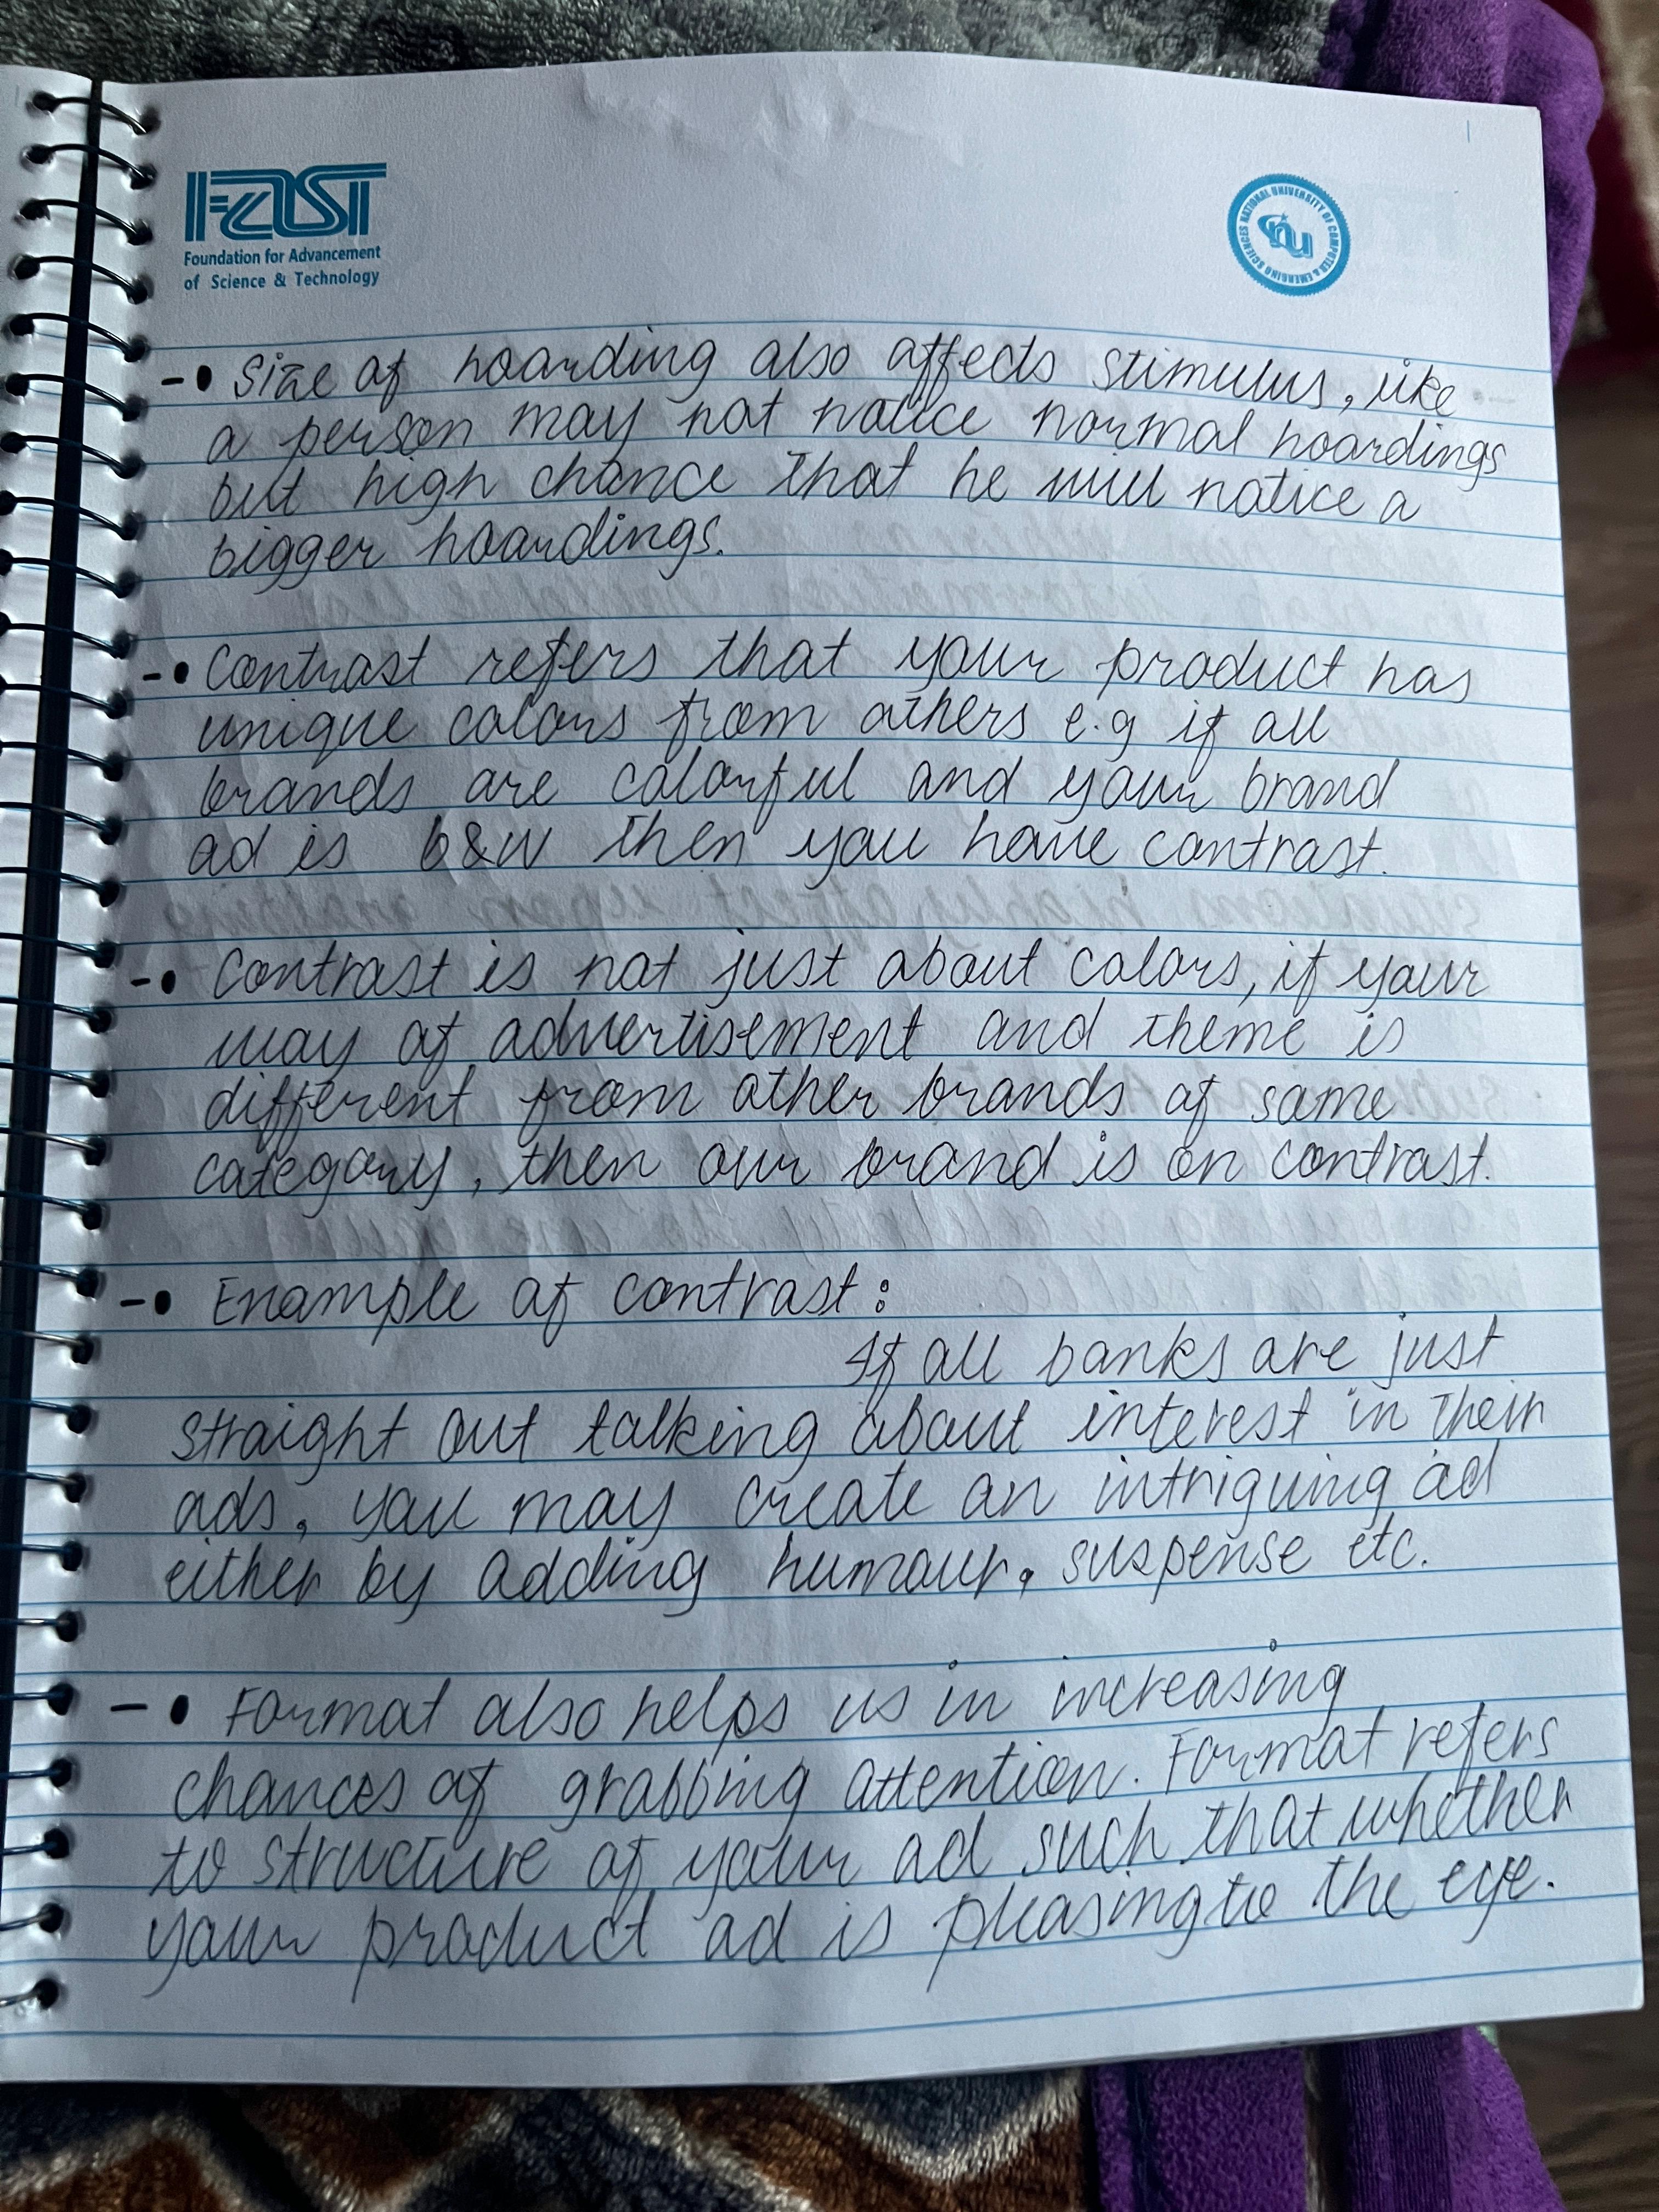 FAST
Foundation for Advancement
of Science & Technology
NATIONAL UNIVERSITY OF COMPUTER & EMERGING SCIENCES
nu
-• Size of hoarding also affects stimulus, like
a person may not notice normal hoardings
but high chance that he will notice a
bigger hoardings.
-• Contrast refers that your product has
unique colors from others e.g if all
brands are colorful and your brand
ad is b&w then you have contrast.
-• Contrast is not just about colors, if your
way of advertisement and theme is
different from other brands of same
category, then our brand is on contrast.
-• Example of contrast:
If all banks are just
straight out talking about interest in their
ads, you may create an intriguing ad
either by adding humour, suspense etc.
-• Format also helps us in increasing
chances of grabbing attention. Format refers
to structure of your ad such that whether
your product ad is pleasing to the eye.